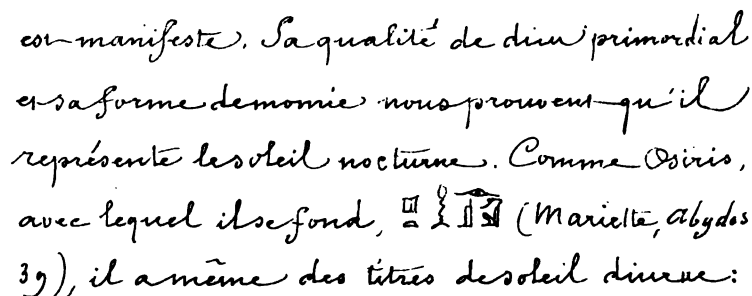 est manifeste. Sa qualité de dieu primordial
et sa forme de momie nous prouvent qu'il
représente le soleil nocturne. Comme Osiris,
avec lequel il se fond, (Mariette, Abydos
39), il a même des titres de soleil diurne: